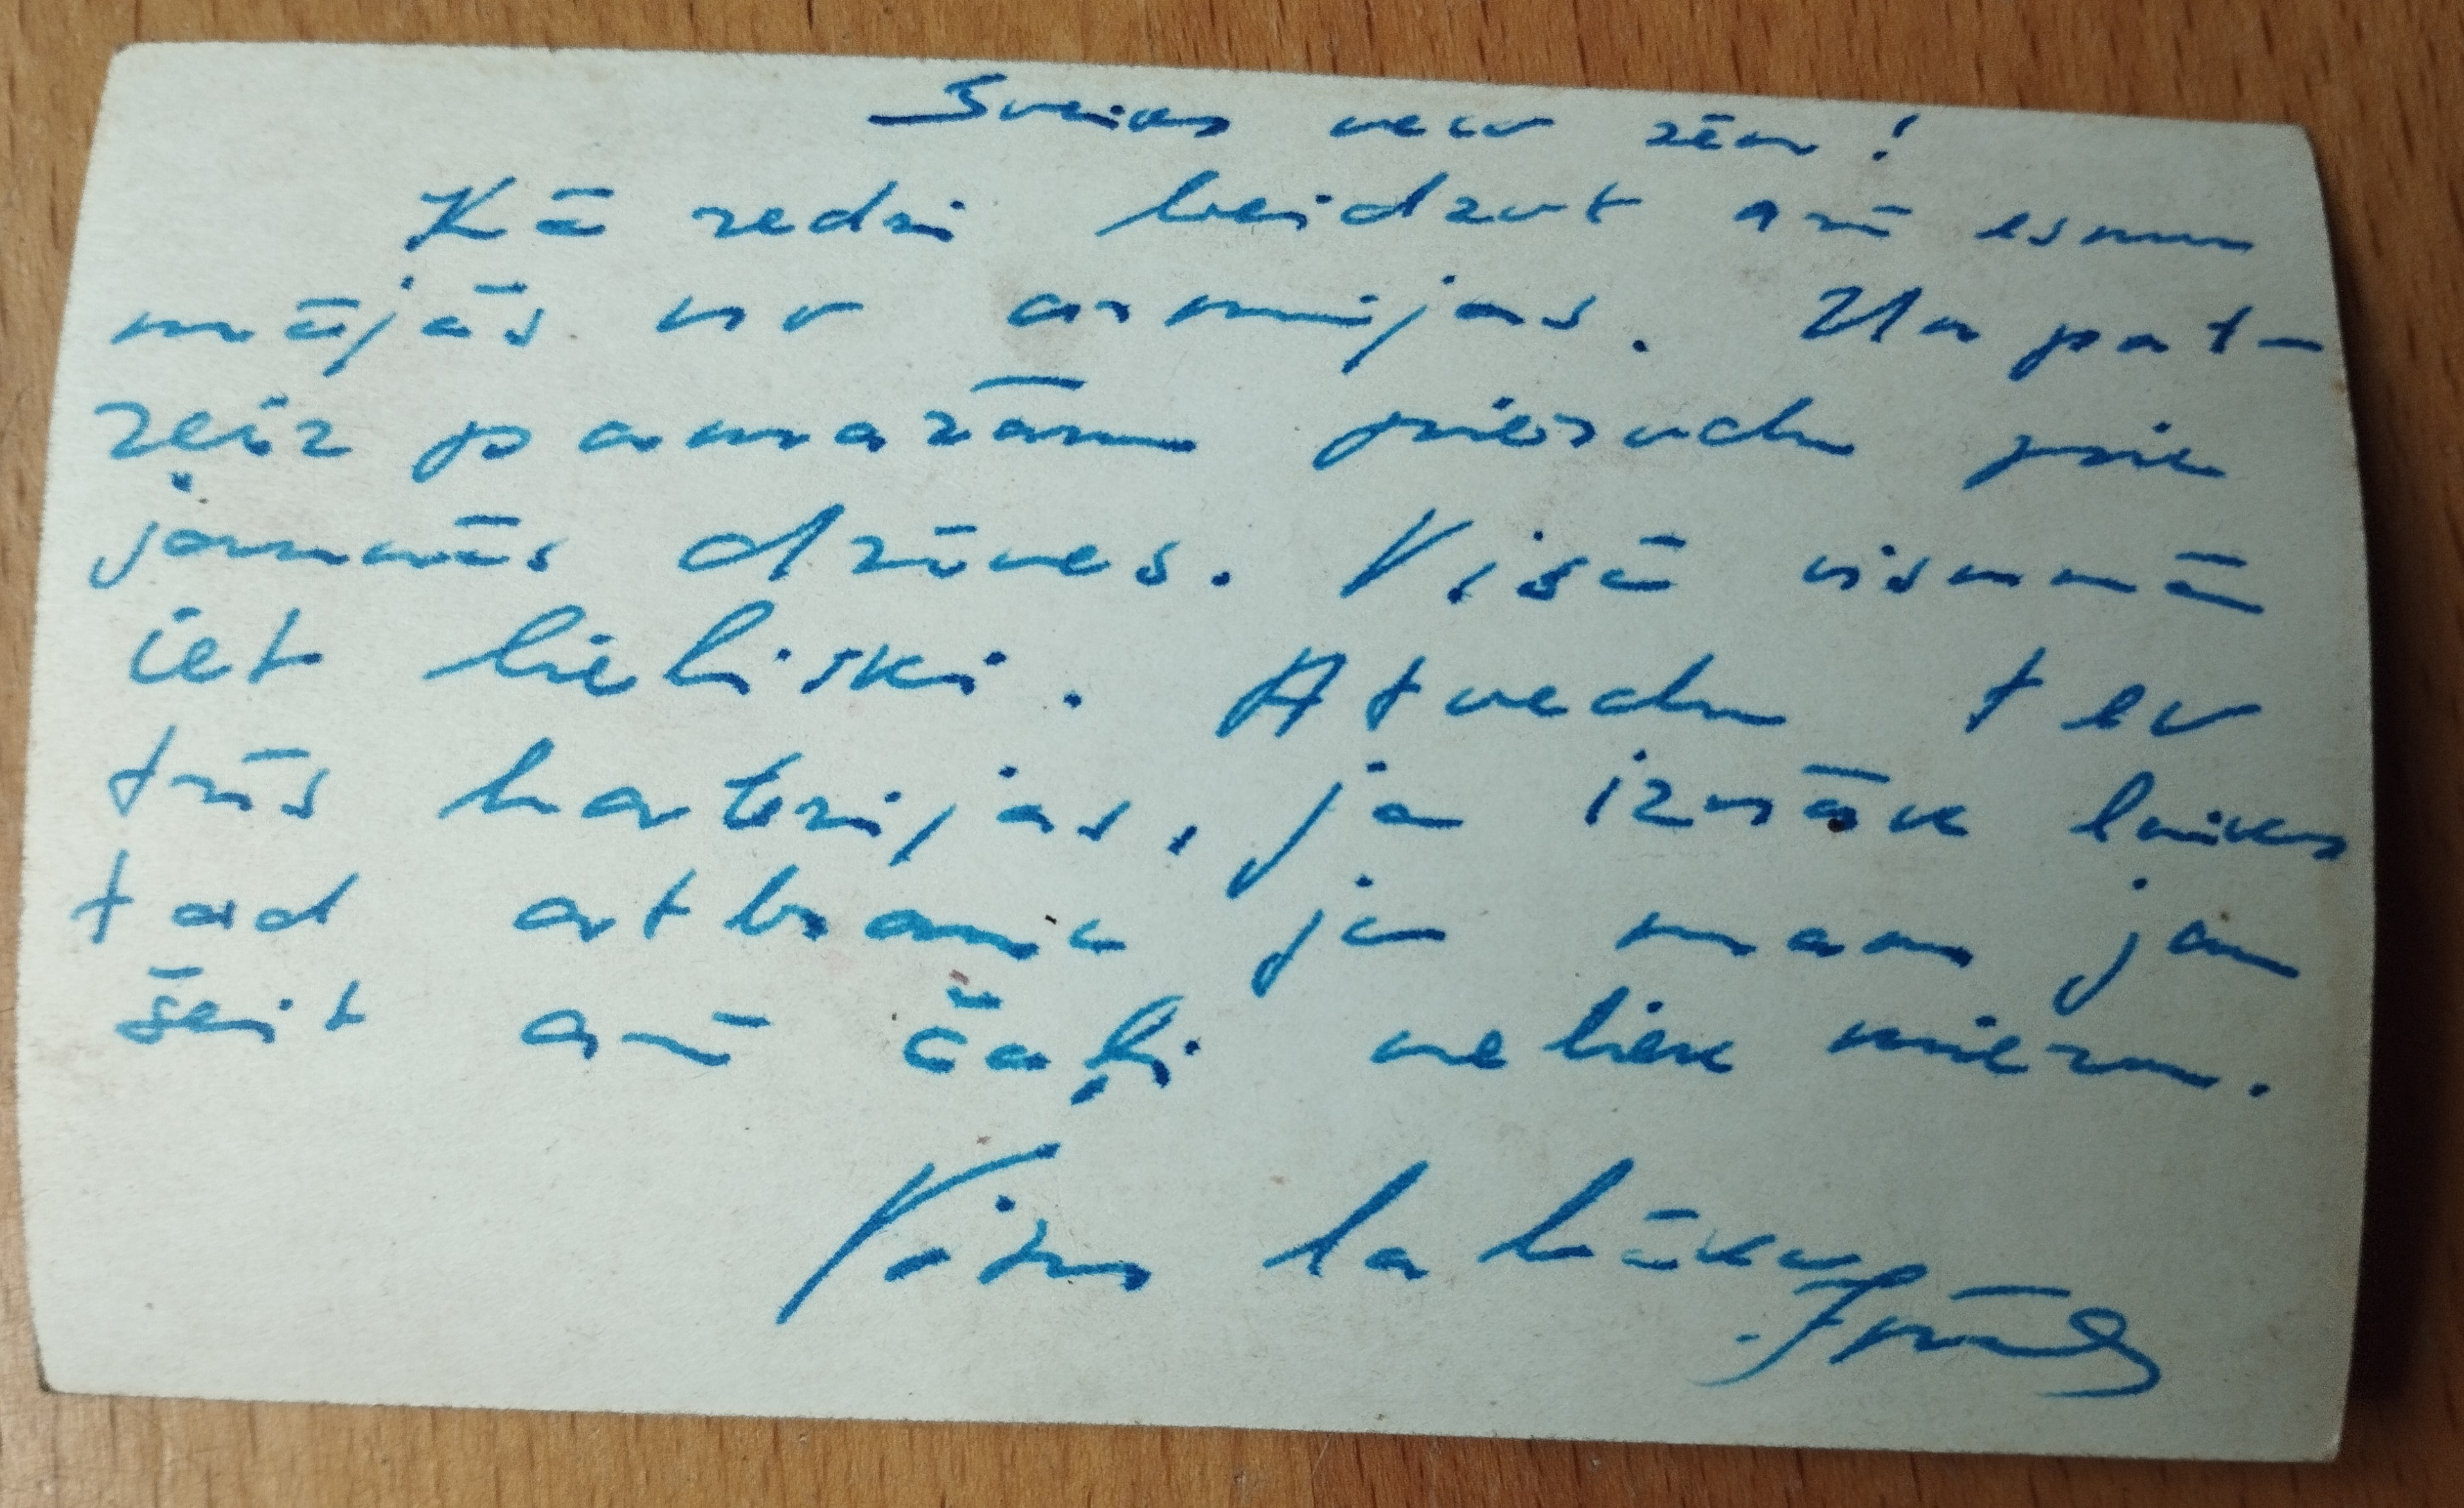 Sveiks veco zēn!
Kā redzi beidzot arī esmu
mājās no armijas. Un pat-
reiz pamazām pierodu pie
jaunās dzīves. Visā visumā
iet lieliski. Atvedu tev
trīs baterijas, ja iznāk laiks
tad atbrauc jo man jau
šeit arī čaļi neliek mieru.
Visu labāko